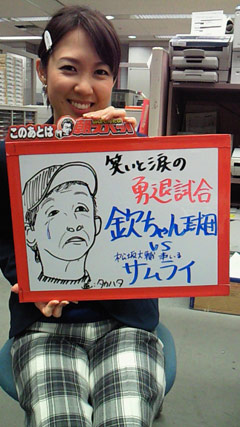 このあとは
笑いと涙の
勇退試合
欽ちゃん球団
VS
松坂大輔率いる
サムライ
タカハタ